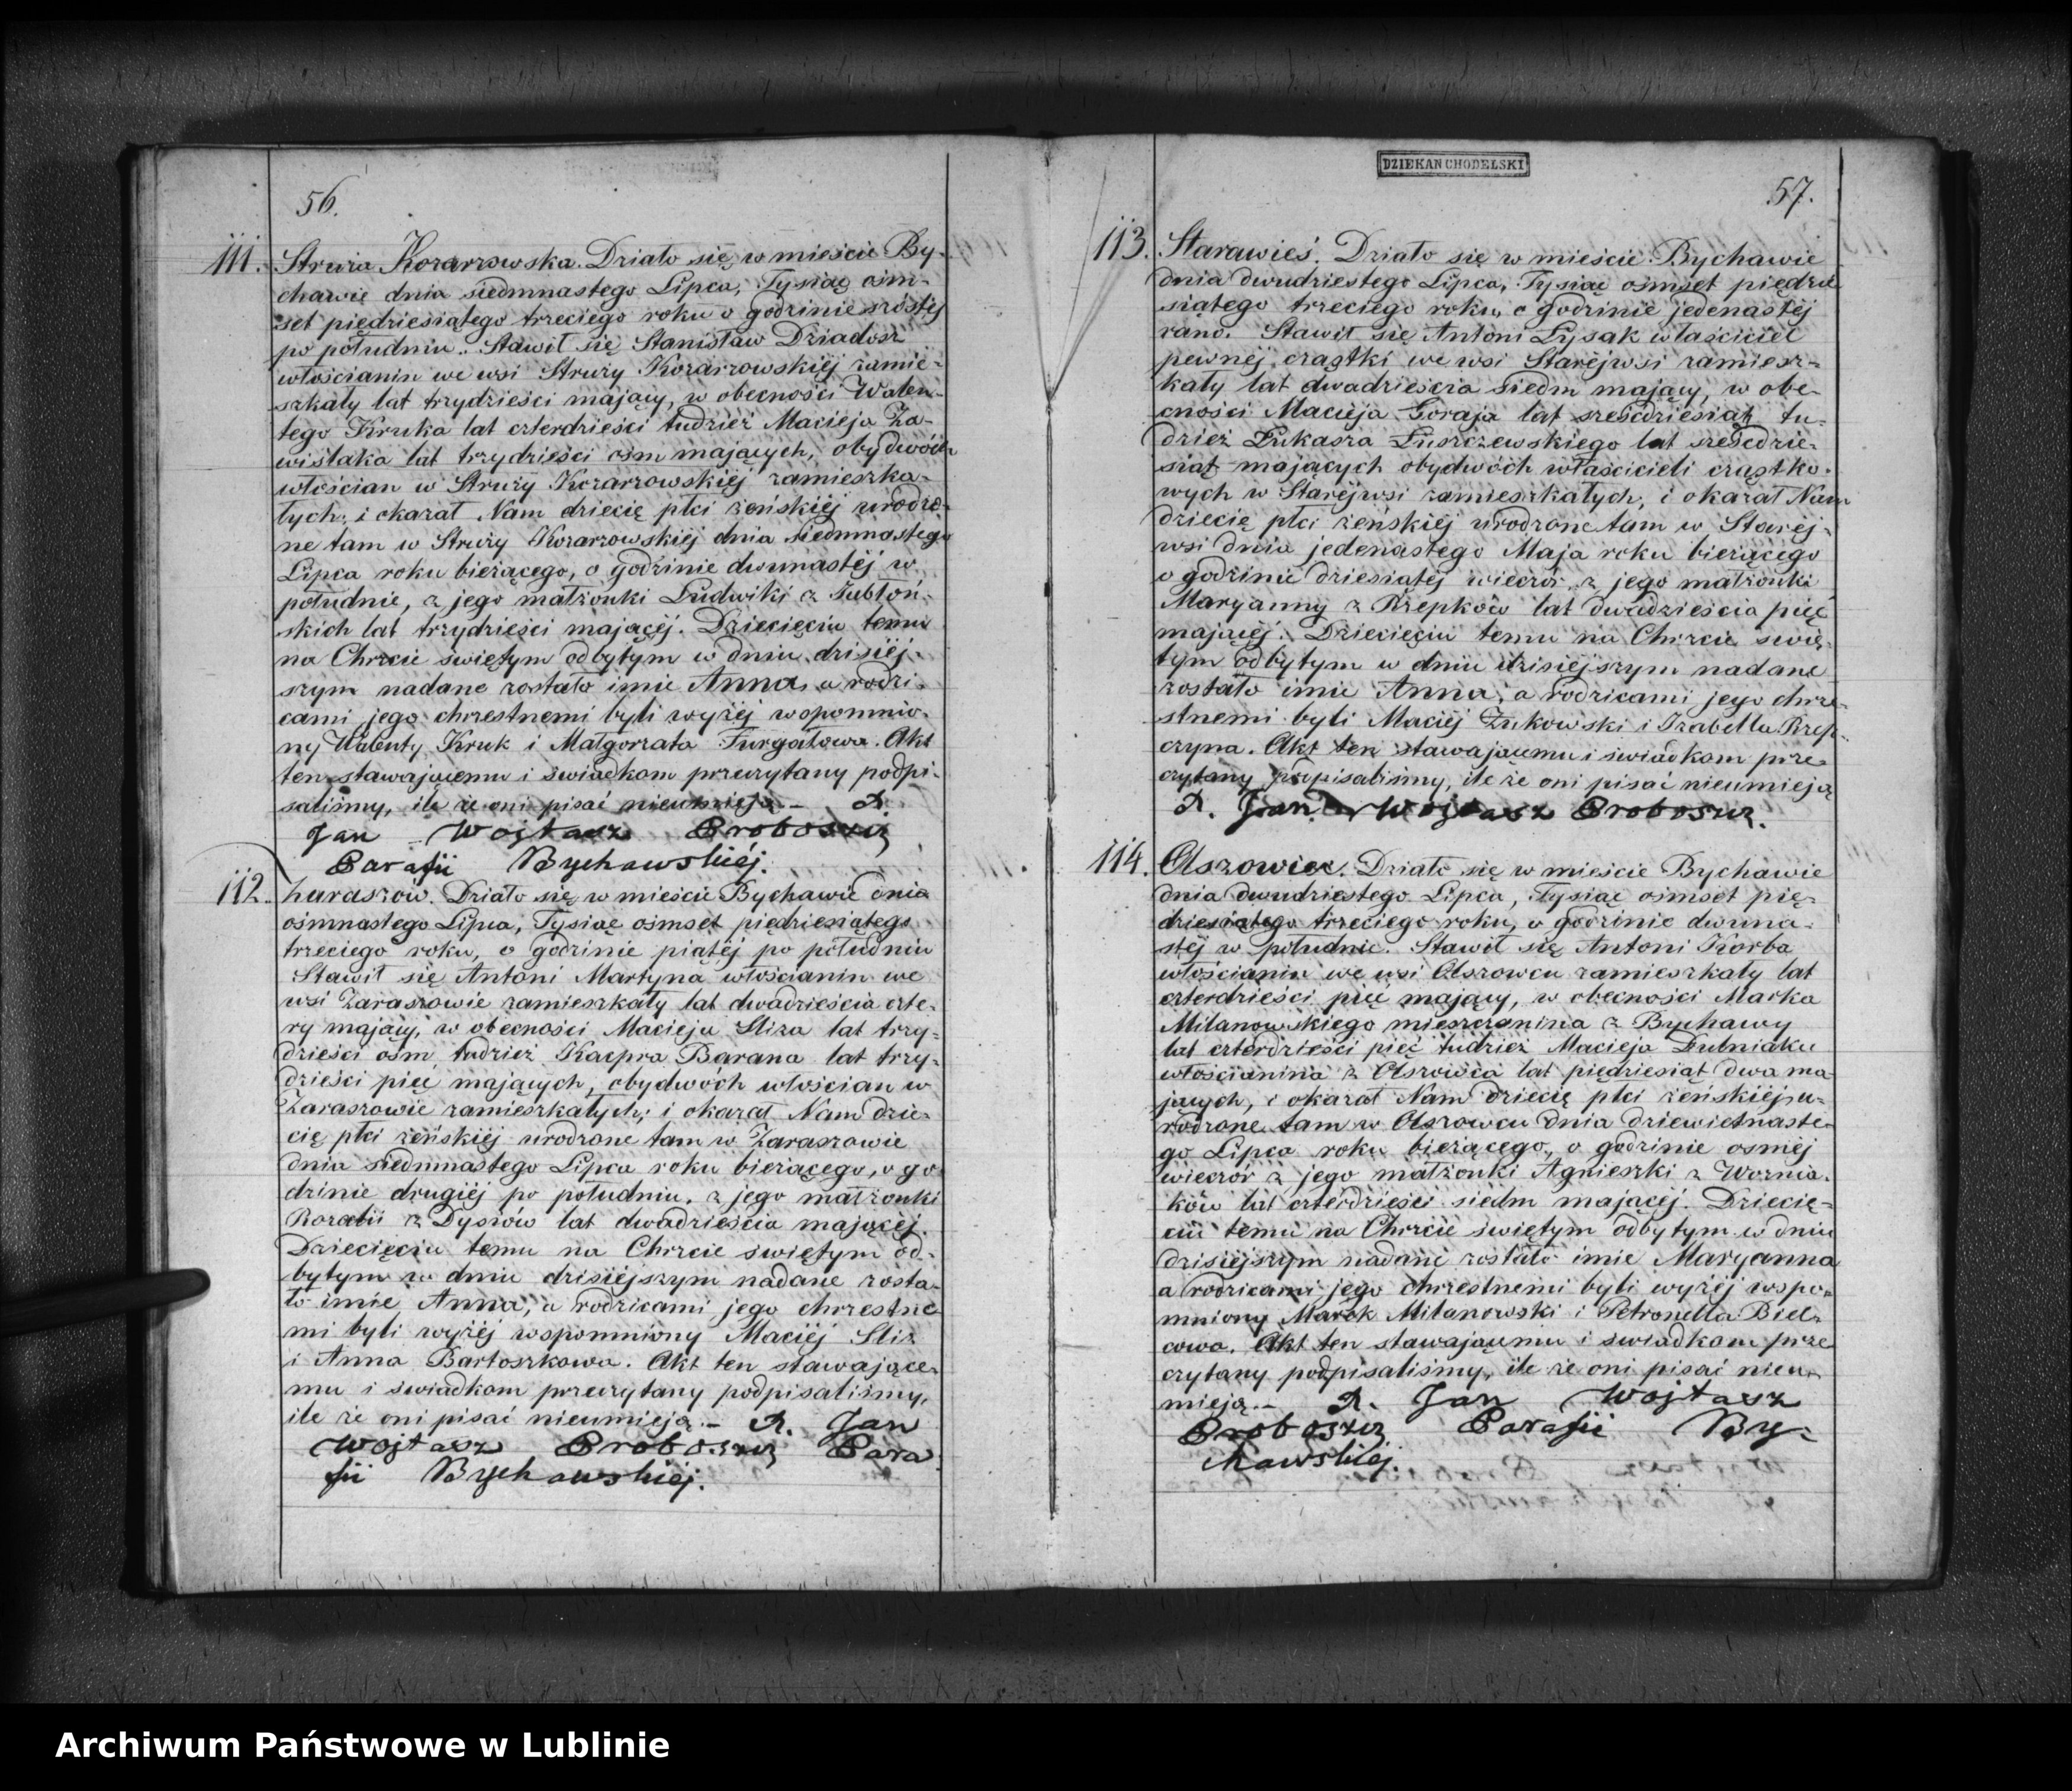 56.
111. Struża Kozarzowska. Działo się w mieście By-
chawie dnia siedmnastego Lipca, Tysiąc ośm-
set piędziesiątego trzeciego roku o godzinie szóstéj
po południu. Stawił się Stanisław Dziadosz
włościanin we wsi Struży Kozarzowskiéj zamie-
szkały lat trzydzieści maiący, w obecności Walen-
tego Kruka lat czterdzieści tudzież Macieja Za-
wiślaka lat trzydzieści ośm mających, obydwóch
włościan w Struży Kozarzowskiéj zamieszka-
łych; i okazał Nam dziecię płci żeńskiéj urodzo-
ne tam w Struży Kozarzowskiéj dnia siedmnastego
Lipca roku bieżącego, o godzinie dwunastéj w
południe, z jego małżonki Ludwiki z Jubłoń-
skich lat trzydzieści mającéj. Dziecięciu temu
na Chrzcie świętym odbytym w dniu dzisiéj-
szym nadane zostało imie Anna, a rodzi-
cami jego chrzestnemi byli wyżéj wspomnio-
ny Walenty Kruk i Małgorzata Furgałowa. Akt
ten stawającemu i świadkom przeczytany podpi-
saliśmy, ile że oni pisać nieumieją. – X.
Jan Wojtasz Proboszcz
Parafii Bychawskiéj.
112. Zaraszów. Działo się w mieście Bychawie dnia
ośmnastego Lipca, Tysiąc ośmset piędziesiątego
trzeciego roku, o godzinie piątéj po południu
Stawił się Antoni Martyna włościanin we
wsi Zaraszowie zamieszkały lat dwadzieścia czte-
ry mający, w obecności Macieja Śliza lat trzy-
dzieści ośm tudzież Kacpra Barana lat trzy-
dzieści pięć mających, obydwóch włościan w
Zaraszowie zamieszkałych; i okazał Nam dzie-
cię płci żeńskiéj urodzone tam w Zaraszowie
dnia siedmnastego Lipca roku bieżącego, o go-
dzinie drugiéj po południu, z jego małżonki
Rozalii z Dysiów lat dwadzieścia mającéj.
Dziecięciu temu na Chrzcie świętym od-
bytym w dniu dzisiéjszym nadane zosta-
ło imie Anna, a rodzicami jego chrzestne-
mi byli wyżéj wspomniony Maciéj Śliz
i Anna Bartoszkowa. Akt ten stawające-
mu i świadkom przeczytany podpisaliśmy,
ile że oni pisać nieumieją. – X. Jan
Wojtasz Proboszcz Para
fii Bychawskiéj.
DZIEKAN CHODELSKI
57.
113. Starawieś. Działo się w mieście Bychawie
dnia dwudziestego Lipca, Tysiąc ośmset piędzie-
siątego trzeciego roku, o godzinie jedenastéj
rano. Stawił się Antoni Łysak właściciel
pewnéj cząstki we wsi Staréjwsi zamiesz-
kały lat dwadzieścia siedm mający, w obe-
cności Macieja Goraja lat sześćdziesiąt tu-
dzież Łukasza Łuszczewskiego lat sześćdzie-
siąt mających obydwóch właścicieli cząstko-
wych w Staréjwsi zamieszkałych; i okazał Nam
dziecię płci żeńskiéj urodzone tam w Staréj-
wsi dnia jedenastego Maja roku bieżącego
o godzinie dziesiątéj wieczór z jego małżonki
Maryanny z Rzepków lat dwadzieścia pięć
mającéj. Dziecięciu temu na Chrzcie świę-
tym odbytym w dniu dzisiéjszym nadane
zostało imie Anna, a rodzicami jego chrze-
stnemi byli Maciéj Żukowski i Izabella Rzep-
czyna. Akt ten stawającemu i świadkom prze-
czytany podpisaliśmy, ile że oni pisać nieumieją
X. Jan Wojtasz Proboszcz.
114. Olszowiec. Działo się w mieście Bychawie
dnia dwudziestego Lipca, Tysiąc ośmset pię-
dziesiątego trzeciego roku, o godzinie dwuna-
stéj w południe. Stawił się Antoni Korba
włościanin we wsi Olszowcu zamieszkały lat
czterdzieści pięć mający, w obecności Marka
Milanowskiego mieszczanina z Bychawy
lat czterdzieści pięć tudzież Macieja Dulniaka
włościanina z Olszowca lat piędziesiąt dwa ma-
jących, i okazał Nam dziecię płci żeńskiéj u-
rodzone tam w Olszowcu dnia dziewiętnaste-
go Lipca roku bieżącego, o godzinie ósméj
wieczór z jego małżonki Agnieszki z Woznia-
ków lat czterdzieści siedm mającéj. Dziecię-
ciu temu na Chrzcie świętym odbytym w dniu
dzisiéjszym nadane zostało imie Maryanna
a rodzicami jego chrzestnemi byli wyżéj wspo-
mniony Marek Milanowski i Petronella Biel-
cowa. Akt ten stawającemu i świadkom prze
czytany podpisaliśmy, ile że oni pisać nieu-
mieją. – X. Jan Wojtasz
Proboszcz Parafii By-
chawskiéj.
Archiwum Państwowe w Lublinie